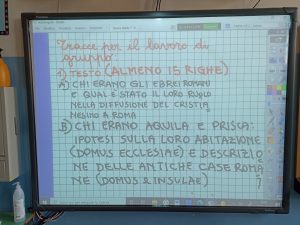 Tracce per il lavoro di
gruppo:
1) TESTO (ALMENO 15 RIGHE)
A) CHI ERANO GLI EBREI ROMANI
E QUAL È STATO IL LORO RUOLO
NELLA DIFFUSIONE DEL CRISTIA
NESIMO A ROMA
B) CHI ERANO AQUILA E PRISCA:
IPOTESI SULLA LORO ABITAZIONE
(DOMUS ECCLESIAE) E DESCRIZIO
NE DELLE ANTICHE CASE ROMA
NE (DOMUS E INSULAE)